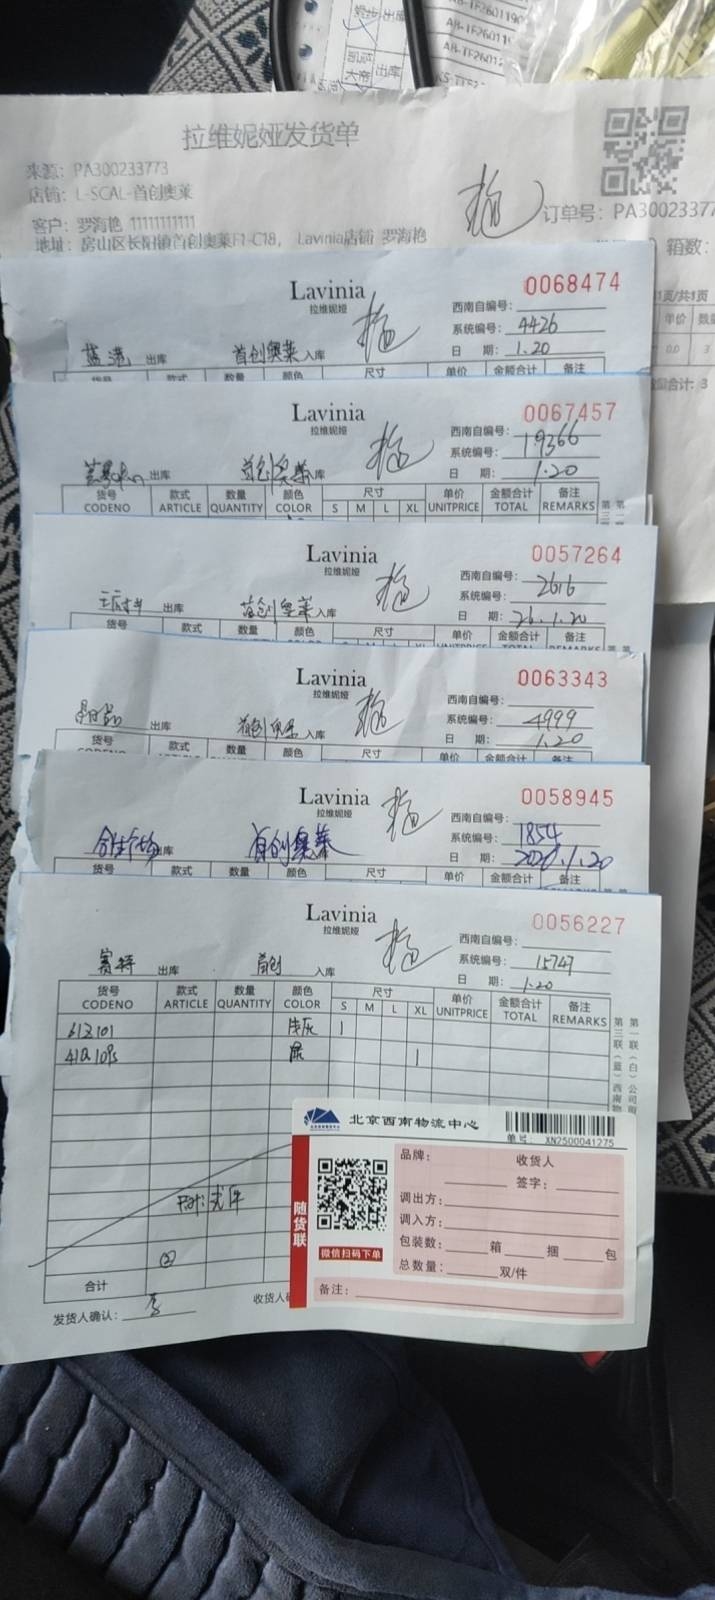 AB-TF2601190
AB-TF26011
AB-TF26012
拉维妮娅发货单
来源：PA300233773
店铺：L-SCAL-首创奥莱
客户：罗海艳 11111111111
订单号：PA30023377
地址：房山区长阳镇首创奥莱F1-C18， Lavinia店铺 罗海艳
箱数：
1页/共1页
单价 数量
0.0 3
合计：3
Lavinia
拉维妮娅
0068474
西南自编号：
系统编号：4426
蓝港 出库 首创奥莱 入库
日 期：1.20
货号 款式 数量 颜色 尺寸 单价 金额合计 备注
Lavinia
拉维妮娅
0067457
西南自编号：
系统编号：19366
出库 首创奥莱 入库
日 期：1.20
货号 款式 数量 颜色 尺寸 单价 金额合计 备注
CODENO ARTICLE QUANTITY COLOR S M L XL UNITPRICE TOTAL REMARKS
Lavinia
拉维妮娅
0057264
西南自编号：
系统编号：2616
王府井 出库 首创奥莱 入库
日 期：26.1.20
货号 款式 数量 颜色 尺寸 单价 金额合计 备注
Lavinia
拉维妮娅
0063343
西南自编号：
系统编号：4999
出库 首创奥莱 入库
日 期：1.20
货号 款式 数量 颜色 尺寸 单价 金额合计 备注
CODENO
Lavinia
拉维妮娅
0058945
西南自编号：
系统编号：1854
合生广场 出库 首创奥莱
日 期：2026.1.20
货号 款式 数量 颜色 尺寸 单价 金额合计 备注
Lavinia
拉维妮娅
0056227
西南自编号：
系统编号：15747
赛特 出库 首创 入库
日 期：1.20
货号 款式 数量 颜色 尺寸 单价 金额合计 备注
CODENO ARTICLE QUANTITY COLOR S M L XL UNITPRICE TOTAL REMARKS
61Z101 浅灰 1
黑 1
第一联（白）公司留
第三联（蓝）西南物
②
合计
发货人确认：
收货人确
北京西南物流中心
单号： XN2500041275
随货联
微信扫码下单
品牌： 收货人
签字：
调出方：
调入方：
包装数： 箱 捆 包
总数量： 双/件
备注：